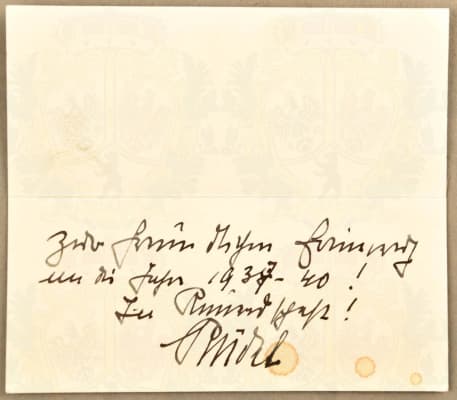 Zur freundlichen Erinnerung
an die Jahre 1937-40!
In Freundschaft!